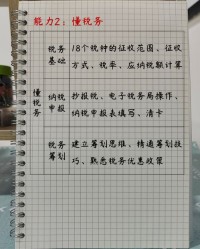 能力2：懂税务
懂税务
税务基础
18个税种的征收范围、征收
方式、税率、应纳税额计算
纳税申报
抄报税、电子税务局操作、
纳税申报表填写、清卡
税务筹划
建立筹划思维、精通筹划技
巧、熟悉税务优惠政策